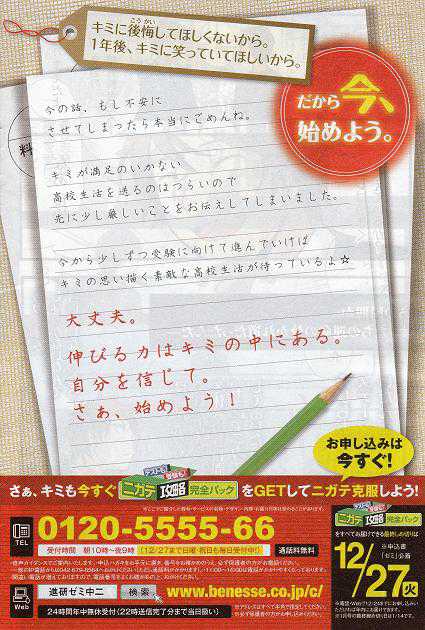 キミに後悔してほしくないから。
1年後、キミに笑っていてほしいから。
だから今、
始めよう。
今の話、もし不安に
させてしまったら本当にごめんね。
キミが満足のいかない
高校生活を送るのはつらいので
先に少し厳しいことをお伝えしてしまいました。
今から少しずつ受験に向けて進んでいけば
キミの思い描く素敵な高校生活が待っているよ☆
大丈夫。
伸びる力はキミの中にある。
自分を信じて。
さぁ、始めよう！
お申し込みは
今すぐ!
さぁ、キミも今すぐ ニガテ攻略完全パック をGETしてニガテ克服しよう!
TEL
0120-5555-66
受付時間 朝10時～夜9時 (12/27まで日曜・祝日も毎日受付中!) 通話料無料
12/27火
Web
進研ゼミ中二 検索 www.benesse.co.jp/c/
24時間年中無休受付(22時送信完了分まで当日扱い)